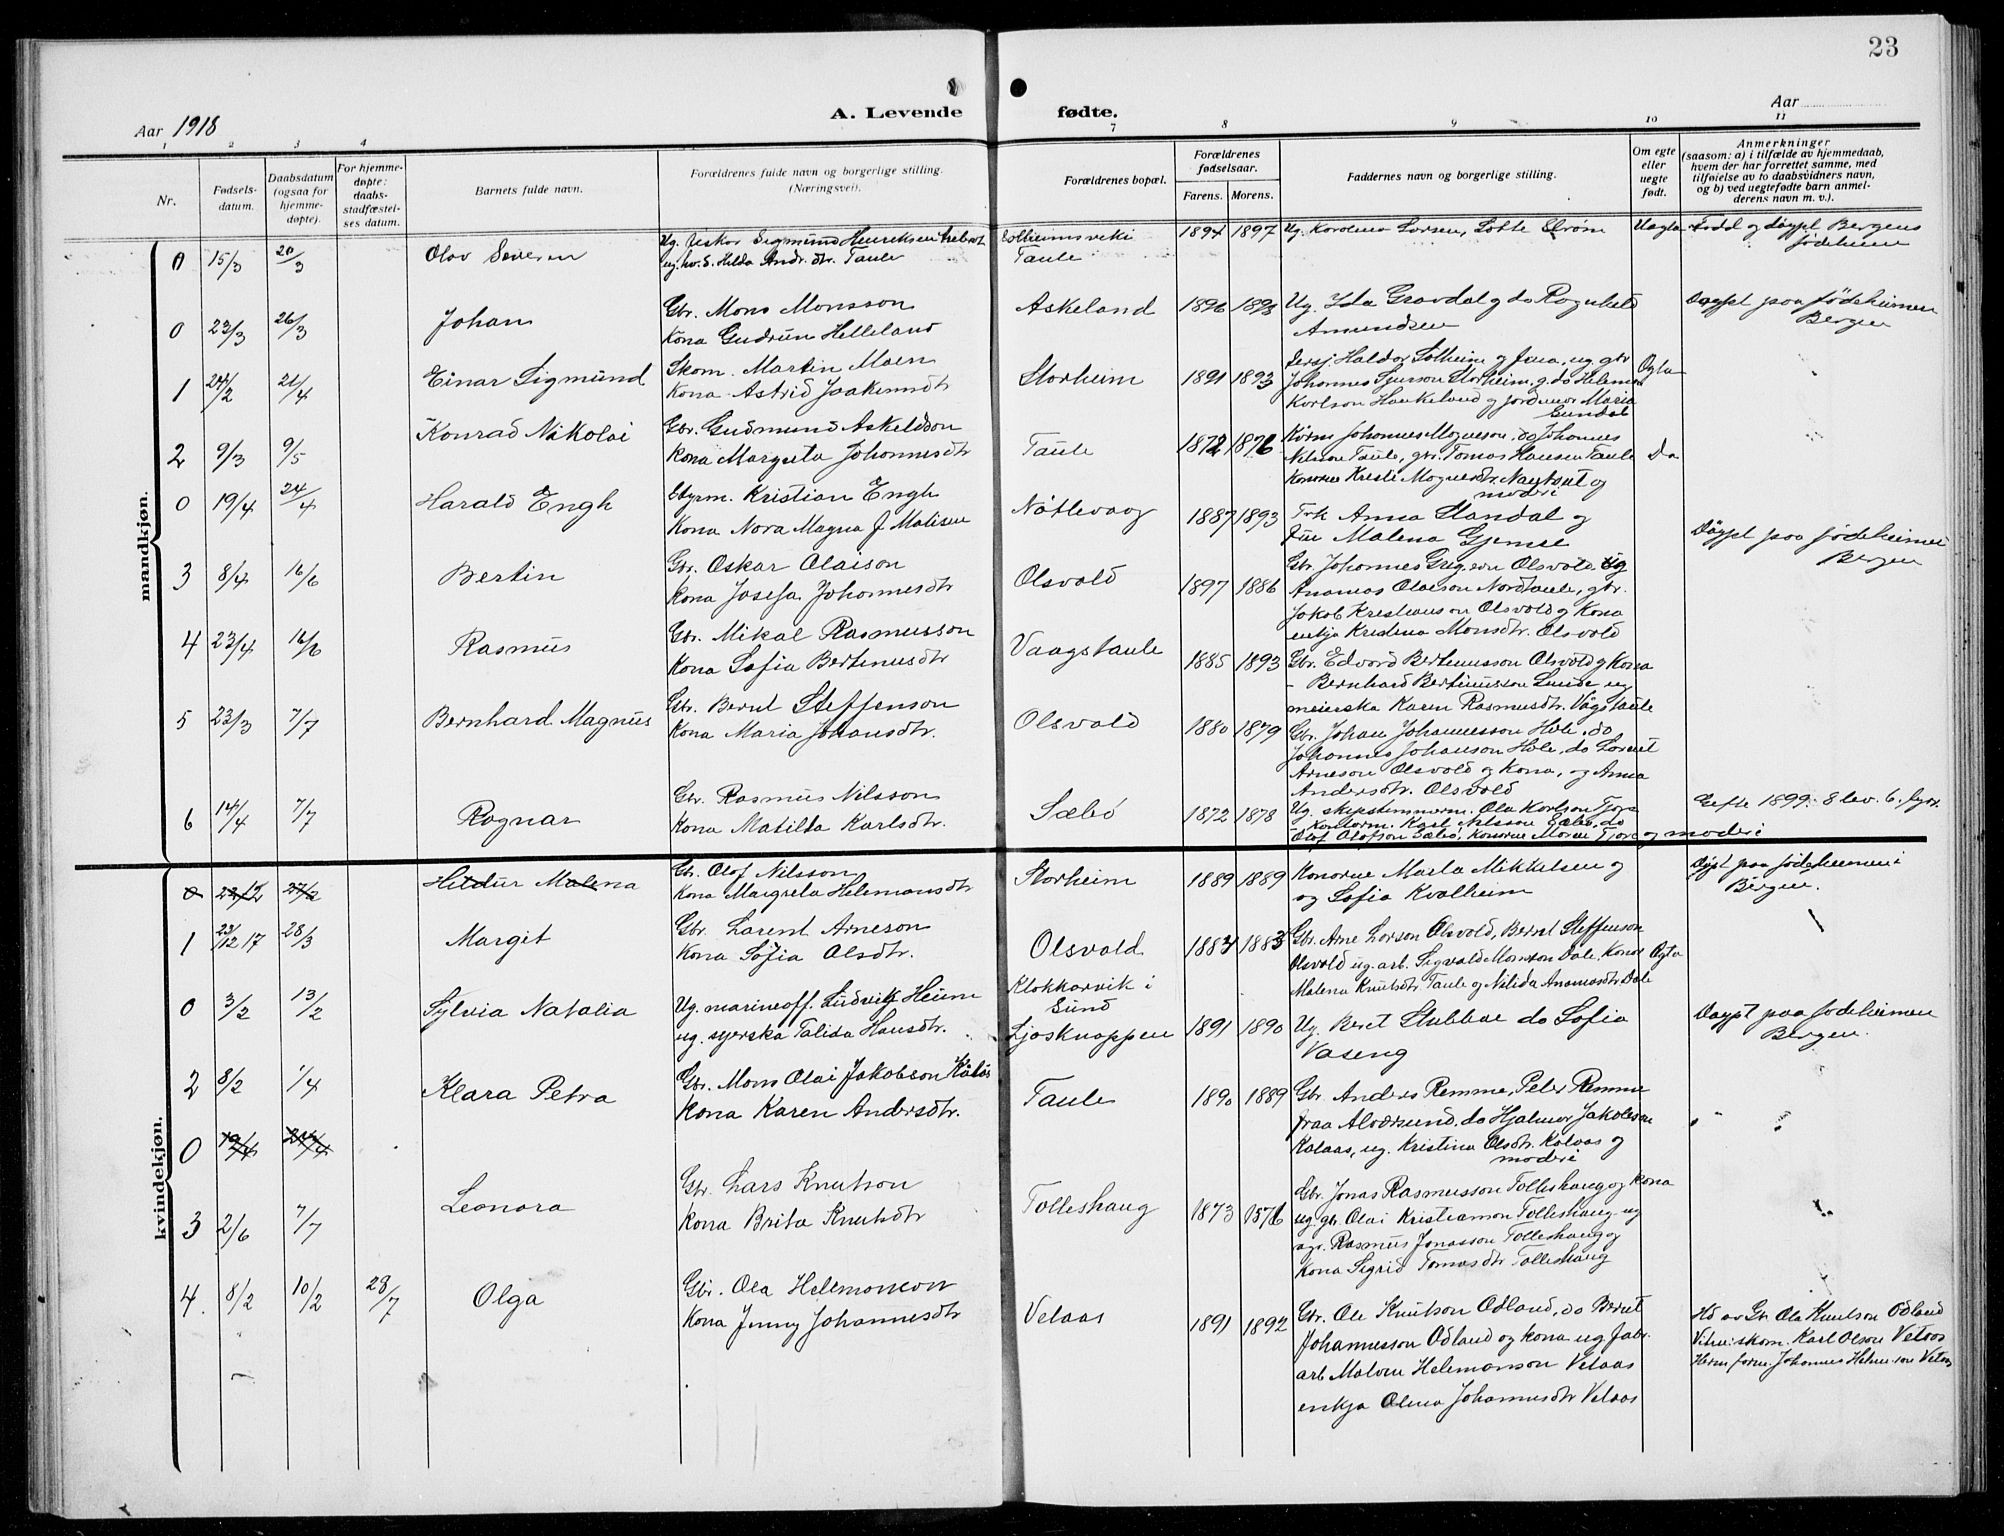 23
Aar 1918
A. Levende fødte.
Aar
1 2 3 4 7 8 9 10 11
Nr.
Fødsels-
datum.
Daabsdatum
(ogsaa for
hjemme-
døpte).
For hjemme-
døpte:
daabs-
stadfæstel-
ses datum.
Barnets fulde navn.
Forældrenes fulde navn og borgerlige stilling.
(Næringsvei).
Forældrenes bopæl.
Forældrenes
fødselsaar.
Farens. Morens.
Faddernes navn og borgerlige stilling.
Om egte
eller
uegte
født.
Anmerkninger
(saasom: a) i tilfælde av hjemmedaab,
hvem der har forrettet samme, med
tilføielse av to daabsvidners navn,
og b) ved uegtefødte barn anmel-
derens navn m. v.).
mandkjøn.
0 15/3 20/3 Olav Severin
Ug. fiskar Sigmund Henriksen
ug. Hilda Andr.dtr. Taule
Solheimsviki
Taule
1894 1897 Ug. Karolina Larsen, Lotte Strøm
Uægta Fødd og døypt Bergens
fødeheim
0 23/3 26/3 Johan
Gbr. Mons Monsson
Kona Gudrun Helleland
Askeland 1896 1893
Ug. Ida Gravdal og do Ragnhild
Amundsen
Døypt paa fødeheimen
Bergen
1 24/2 21/4 Einar Sigmund
Skom. Martin Moen
Kona Astrid Joakimsdtr
Storheim 1891 1893
Haldor Solheim og fena, ug. gbr
Johannes Sjurson Storheim, g. do Helemon
Karlson Haukeland og jordmor Maria
Eundal
Ogta
2 9/3 9/5 Konrad Nikolai
Gbr. Gudmund Askeldson
Kona Margreta Johannesdtr
Taule 1872 1876
Johannes Magneson, do Johannes
Nilsson Taule, gbr. Tomas Hansen Taule
Konorne Kristi Mognesdtr. Nautvet og
moderi
Do
0 19/4 24/4 Harald Engh
Styrm. Kristian Engh
Kona Nora Magna f. Malisen
Nøtlevaag 1887 1893
Frk Anna Standal og
Frue Malena Gjemse
Døypt paa fødeheimen
Bergen
3 8/4 16/6 Bertin
Gbr. Oskar Olaison
Kona Josefa Johannesdtr
Olsvold 1897 1886
Gbr. Johannes Grigson Olsvold. Ug
Ananias Olaison Nordtaule, gbr.
Jakob Kristianson Olsvold og Kona
enkja Kristina Monsdtr. Olsvold
4 23/4 16/6 Rasmus
Gbr. Mikal Rasmusson
Kona Sofia Bertinusdtr
Vaagstaule 1885 1893
Gbr. Edvard Bertinusson Olsvold og Kona
Bernhard Bertinusson Lunde ug
meierska Karen Rasmusdtr. Vågstaule
5 23/3 7/7 Bernhard Magnus
Gbr. Bernt Steffenson
Kona Maria Johansdtr.
Olsvold 1880 1879
Gbr. Johan Johannesson Hole, do
Johannes Johanson Hole, do Lorent
Arneson Olsvold og Kona, og Anna
Andersdtr. Olsvold
6 14/4 7/7 Ragnar
Gbr. Rasmus Nilsson
Kona Matilda Karlsdtr.
Sæbö 1872 1878
Ug. skipstimmerm. Ola Karlson Tjore
Kontorm. Karl Nilsson Sæbö, do
Olaf Olafson Sæbö, Konorne Marie Tjore og moderi
Gifte 1899. 8 lev. 6. fyr.
kvindekjøn.
0 22/12 27/2 Hildur Malena
Gbr. Olaf Nilsson
Kona Margreta Helemonsdtr
Storheim 1889 1889
Konorne Marta Mikkelsen og
og Sofia Kvalheim
Døypt paa fødeheimen i
Bergen.
1 23/12 17 28/3 Margit
Gbr. Larent Arneson
Kona Sofia Olsdtr.
Olsvold 1883 1883
Gbr. Arne Larson Olsvold, Bernt Steffenson
Olsvold ug. arb. Sigvald Monsson Dale, Konor
Malena Knutsdtr. Taule og Nilida Ananiasdtr Dale
Ogta
0 3/2 13/2 Sylvia Natalia
Ug. marineoff. Ludvik Heim
ug. syerska Talida Hansdtr.
Klokkarvik i
Sund
Ljosknappen 1891 1890
Ug. Beret Stubbae do Sofia
Vaseng
Døypt paa fødeheimen
Bergen.
2 8/2 1/4 Klara Petra
Gbr. Mons Olai Jakobson Kålås
Kona Karen Andersdtr.
Taule 1890 1889
Gbr. Anders Remme, Peter Remme
fraa Alversund, do Hjalmar Jakobson
Kalaas, ug. Kristina Olsdtr. Kålaas og
moderi
0 19/4 24/4
3 2/6 7/7 Leonora
Gbr. Lars Knutson
Kona Brita Knutsdtr
Tolleshaug 1873 1876
Gbr. Jonas Rasmusson Tolleshaug og Kona
ug. gbr. Olai Kristianson Tolleshaug ug
Rasmus Jonasson Tolleshaug og
Kona Sigrid Tomasdtr Tolleshaug
4. 8/2 10/2 28/7 Olga
Gbr. Ola Helemonson
Kona Jenny Johannesdtr
Velaas 1891 1892
Gbr. Ole Knutson Odland, do Bernt
Johannesson Odland og kona ug. fabr.
arb Malvin Helemonson Velaas
enkja Olina Johannesdtr Velaas
Hd av Gbr Ola Knutson Odland
Vitne: skom. Karl Olson Velaas
Johannes Helm.son Velaas